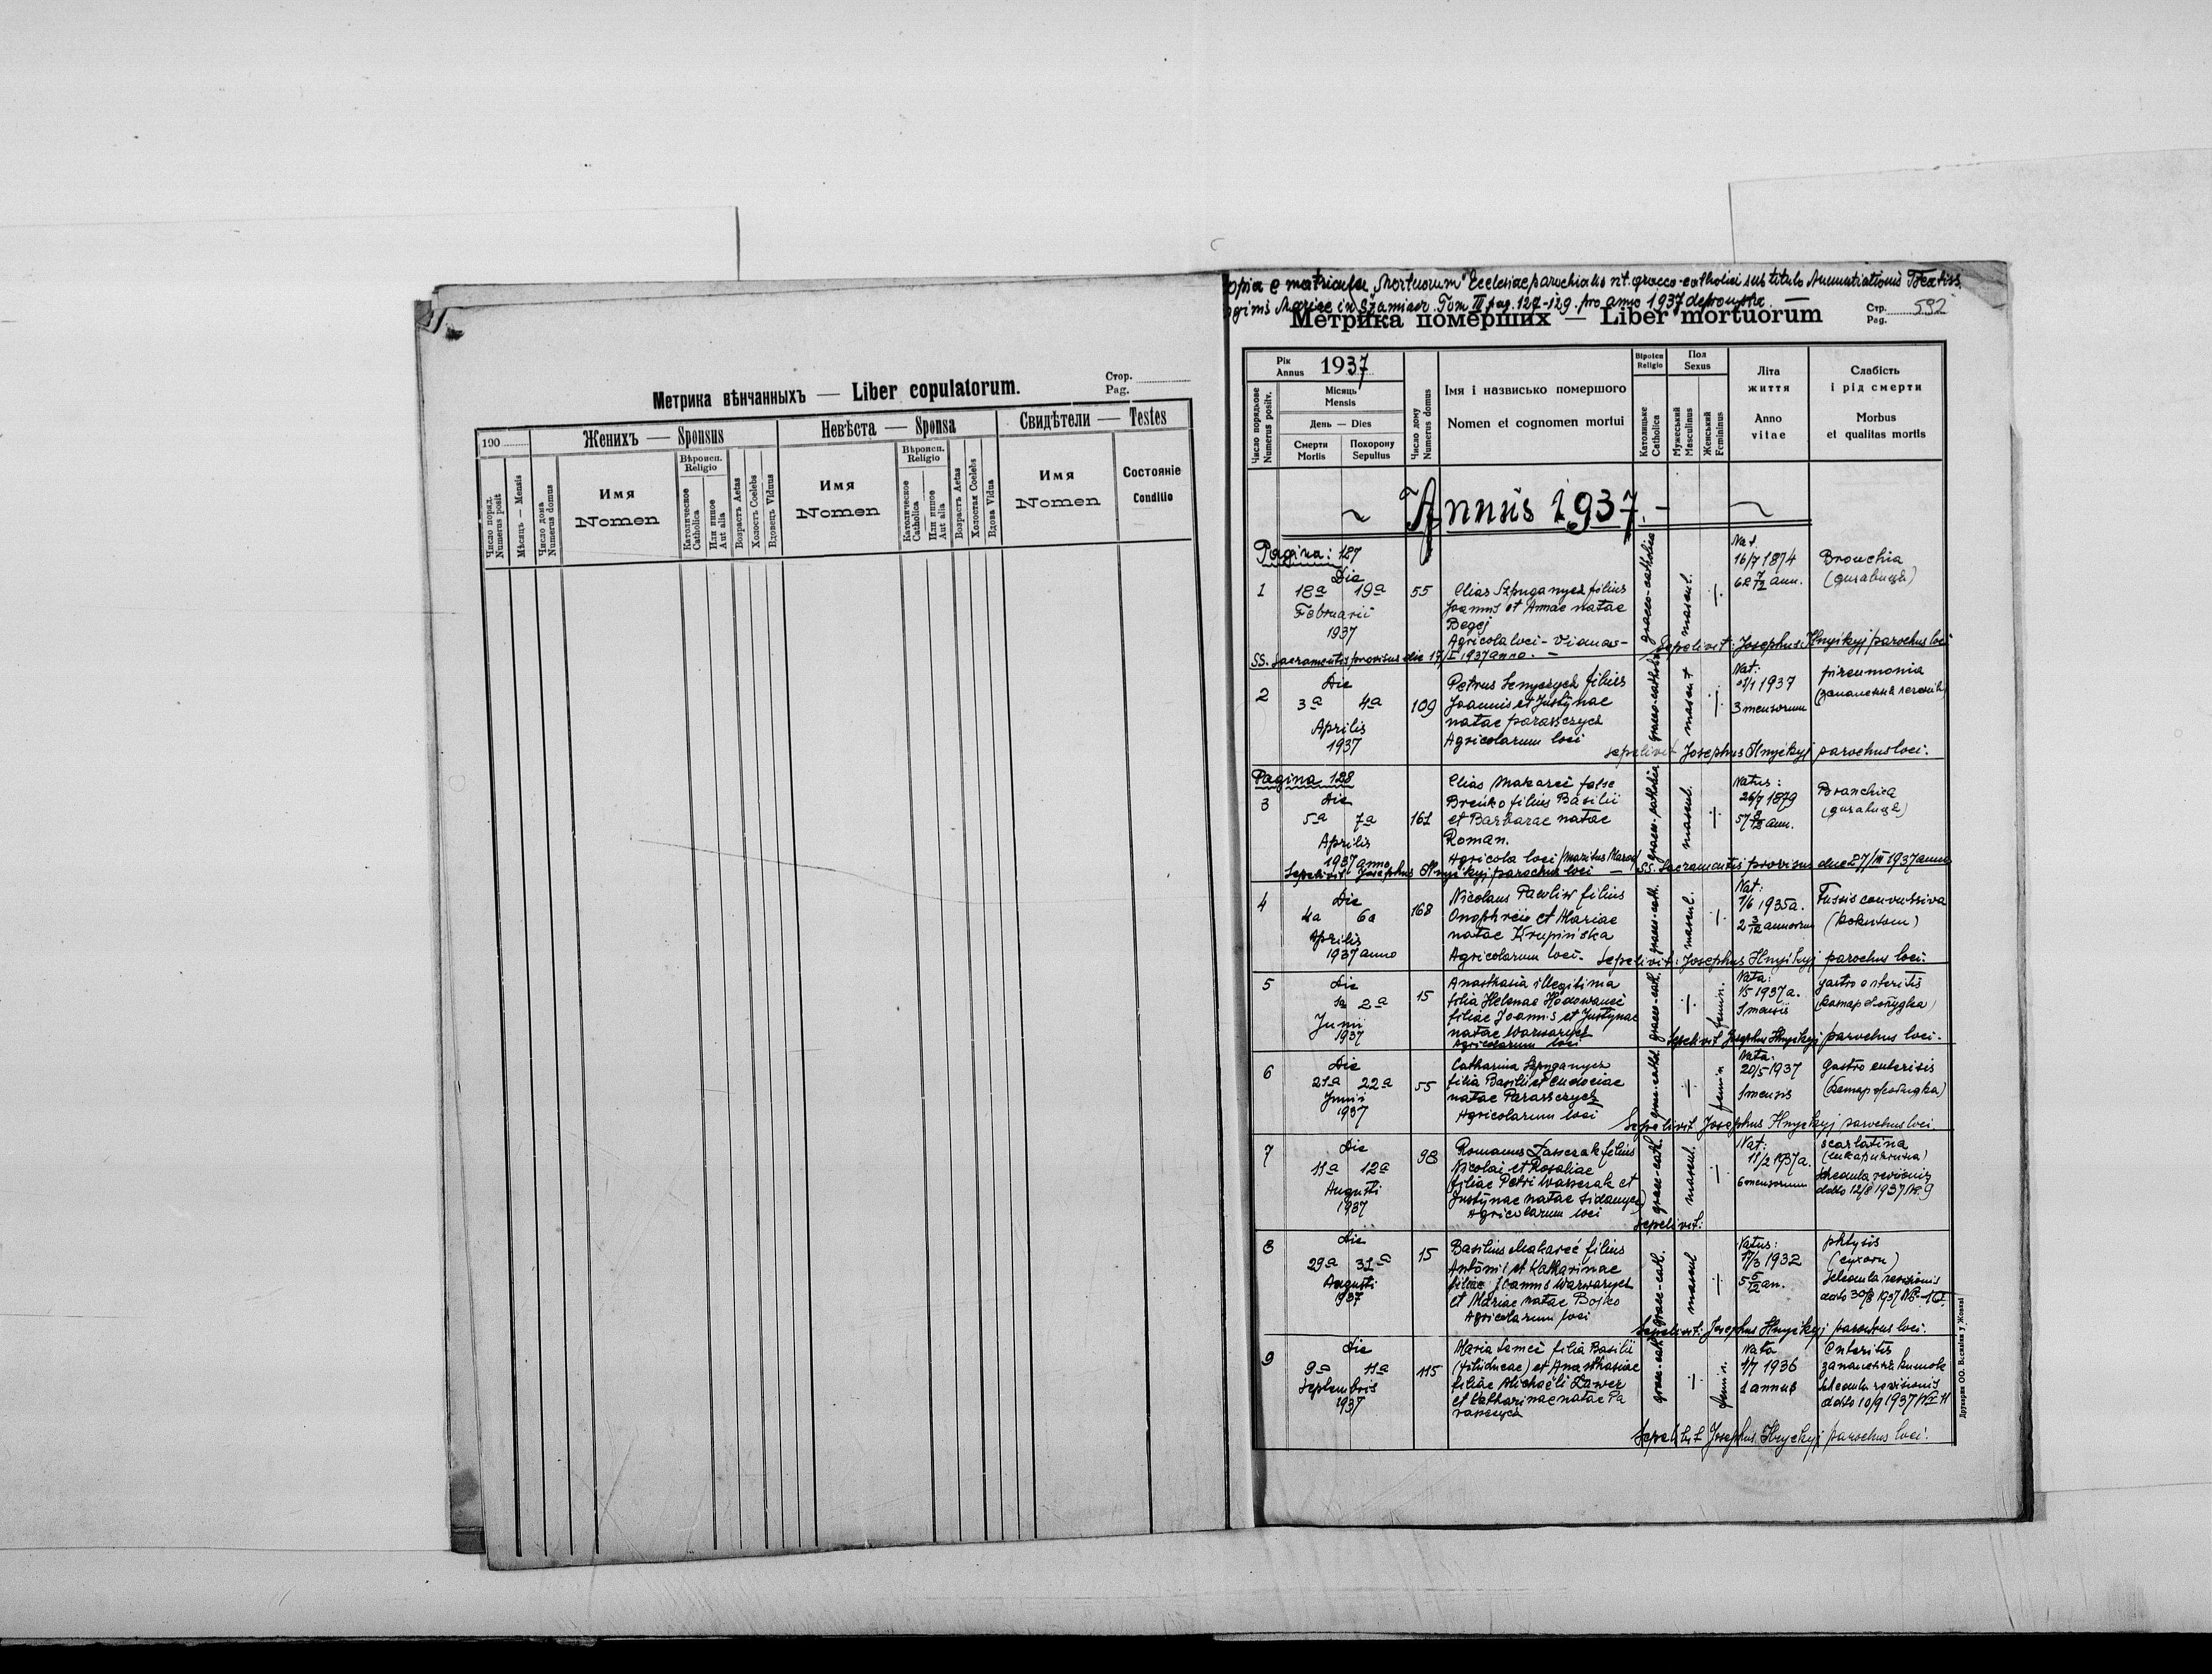 Метрика вѣнчанныхъ — Liber copulatorum.
Стор.
Pag.
190
Женихъ — Sponsus
Невѣста — Sponsa
Свидѣтели — Testes
Число поряд.
Numerus posit
Мѣсяць — Mensis
Число дома
Numerus domus
Имя
Nomen
Вѣроисп.
Religio
Католическое
Catholica
Или инное
Aut alia
Возрастъ Aetas
Холостъ Coelebs
Вдовецъ Viduus
Имя
Nomen
Вѣроисп.
Religio
Католическое
Catholica
Или инное
Aut alia
Возрастъ Aetas
Холостая Coelebs
Вдова Vidua
Имя
Nomen
Состояніе
Conditio
opia e matricula "Mortuorum" Ecclesiae parochialis rit. graeco-catholici sub titulo Annuntiationis Beatiss.
ginis Mariae in Tom III pag. 127-129. pro anno 1937 deprompta. —
Метрика померших — Liber mortuorum
Стр.
Pag. 592
Рік
Annus 1937
Число порядкове
Numerus positv.
Місяць
Mensis
День — Dies
Смерти
Mortis
Похорону
Sepultus
Число дому
Numerus domus
Імя і назвисько помершого
Nomen et cognomen mortui
Віроісп
Religio
Католицьке
Catholica
Пол
Sexus
Мужеський
Masculinus
Женський
Femininus
Літа
життя
Anno
vitae
Слабість
і рід смерти
Morbus
et qualitas mortis
~ Annus 1937. — ~
Pagina: 127
1
Die
18a 19a
Februarii
1937
55
Elias Szpuganycz filius
Joannis et Annae natae
Begej
Agricola loci - Viduus -
graeco-catholica
mascul.
Nat.
16/7 1874
62 7/12 ann.
Bronchia
SS. Sacramentis provisus die 17/I 1937 anno. — Sepelivit: Josephus Hnyckyj parochus loci
2
Die
3a 4a
Aprilis
1937
109
Petrus Senyczych filius
Joannis et Justynae
natae Parasczych
Agricolarum loci
graeco-cathol.
Nat:
1937
3 mensorum
pneumonia
sepelivit Josephus Hnyckyj parochus loci.
Pagina 128
3
Die
5a 7a
Aprilis
1937 anno
161
Elias Makareć false
Breńko filius Basilii
et Barbarae natae
Roman.
Agricola loci
graeco-catholica
mascul.
Natus:
26/7 1879
57 8/12 ann.
Bronchia
Sepelivit Josephus Hnyckyj parochus loci — SS. Sacramentis provisus die 27/III 1937 anno
4
Die
4a 6a
Aprilis
1937 anno
168
Nicolaus Pawliw filius
Onophrii et Mariae
natae Krupińska
Agricolarum loci.
graeco-cath.
mascul.
Nat:
7/6 1935 a.
2 3/12 annorum
Tussis convulsiva
Sepelivit: Josephus Hnyckyj parochus loci.
5
Die
1a 2a
Junii
1937
15
Anasthasia illegitima
filia Helenae Hodowaneć
filiae Joannis et Justynae
natae Warwarycz
Agricolarum loci
graeco-cath.
femin.
Nata:
1/5 1937 a.
1 mensis
gastro enteritis
Sepelivit Josephus Hnyckyj parochus loci.
6
Die
21a 22a
Junii
1937
55
Catharina Szpuganycz
filia Basilii et Eudociae
natae Parasczych
Agricolarum loci
femin
Nata.
20/5 1937
1 mensis
Gastro enteritis
Sepelivit Josephus Hnyckyj parochus loci.
7
Die
11a 12a
Augusti
1937
98
Romanus filius
Nicolai et Rosaliae
filiae Petri et
Justynae natae
Agricolarum loci
graec-cath.
mascul.
Nat:
11/2 1937 a.
6 mensorum
scarlatina
Schedula revisionis
dato 12/8 1937 Nr. 9
Sepelivit:
8
Die
29a 31a
Augusti
1937
15
Basilius Makareć filius
Antonii et Katharinae
filiae Joannis Warwarycz
et Mariae natae Bojko
Agricolarum loci
graec-cath.
mascul
Natus:
17/3 1932
5 5/12 an.
phtysis
(сухоти)
Schedula revisionis
dato 30/8 1937 No 10
Sepelivit: Josephus Hnyckyj parochus loci.
9
Die
9a 11a
Septembris
1937
115
Maria filia Basilii
et Anasthasiae
filiae Michaëli
et Catharinae natae Pa
rasczych
graec-cath.
femin.
Nata
1/7 1936
1 annus
Enteritis
запалення кишок
Schedula revisionis
dato 10/9 1937 No 11
Sepelivit Josephus Hnyckyj parochus loci.
Друкарня ОО. Василіян у Жовкві